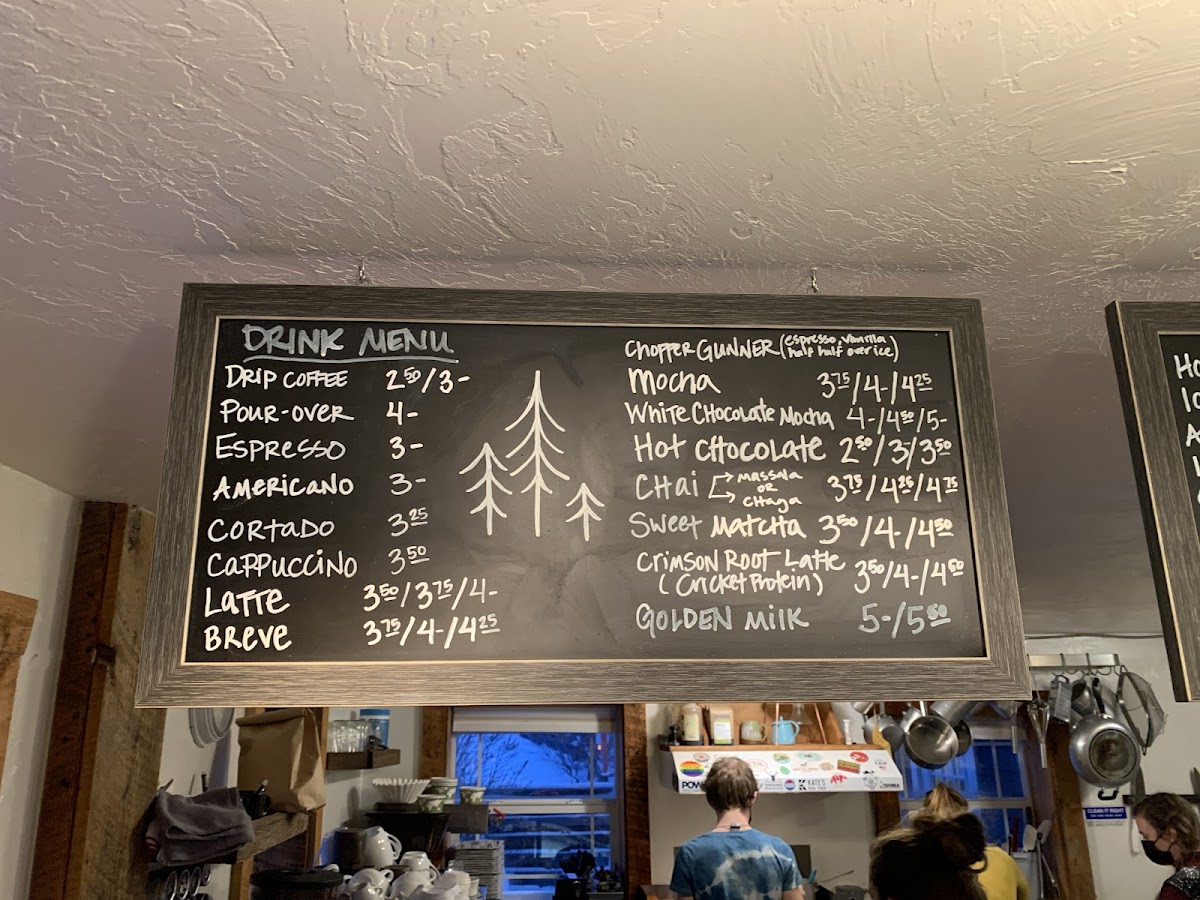 DRINK MENU
DRIP COFFEE 2⁵⁰/3-
POUR-OVER 4-
ESPRESSO 3-
AMERICANO 3-
CORTADO 3²⁵
CAPPUCCINO 3⁵⁰
LATTE 3⁵⁰/3⁷⁵/4-
BREVE 3⁷⁵/4-/4²⁵
CHOPPER GUNNER (espresso, vanilla
half half over ice)
MOCHA 3⁷⁵/4-/4²⁵
WHITE CHOCOLATE MOCHA 4-/4⁵⁰/5-
HOT CHOCOLATE 2⁵⁰/3-/3⁵⁰
CHAI → MASSALA 3⁷⁵/4²⁵/4⁷⁵
OR
→ CHAGA
SWEET MATCHA 3⁵⁰/4-/4⁵⁰
CRIMSON ROOT LATTE 3⁵⁰/4-/4⁵⁰
(CRICKET PROTEIN)
GOLDEN MILK 5-/5⁵⁰
POW
KATE'S
CLEAN IT RIGHT